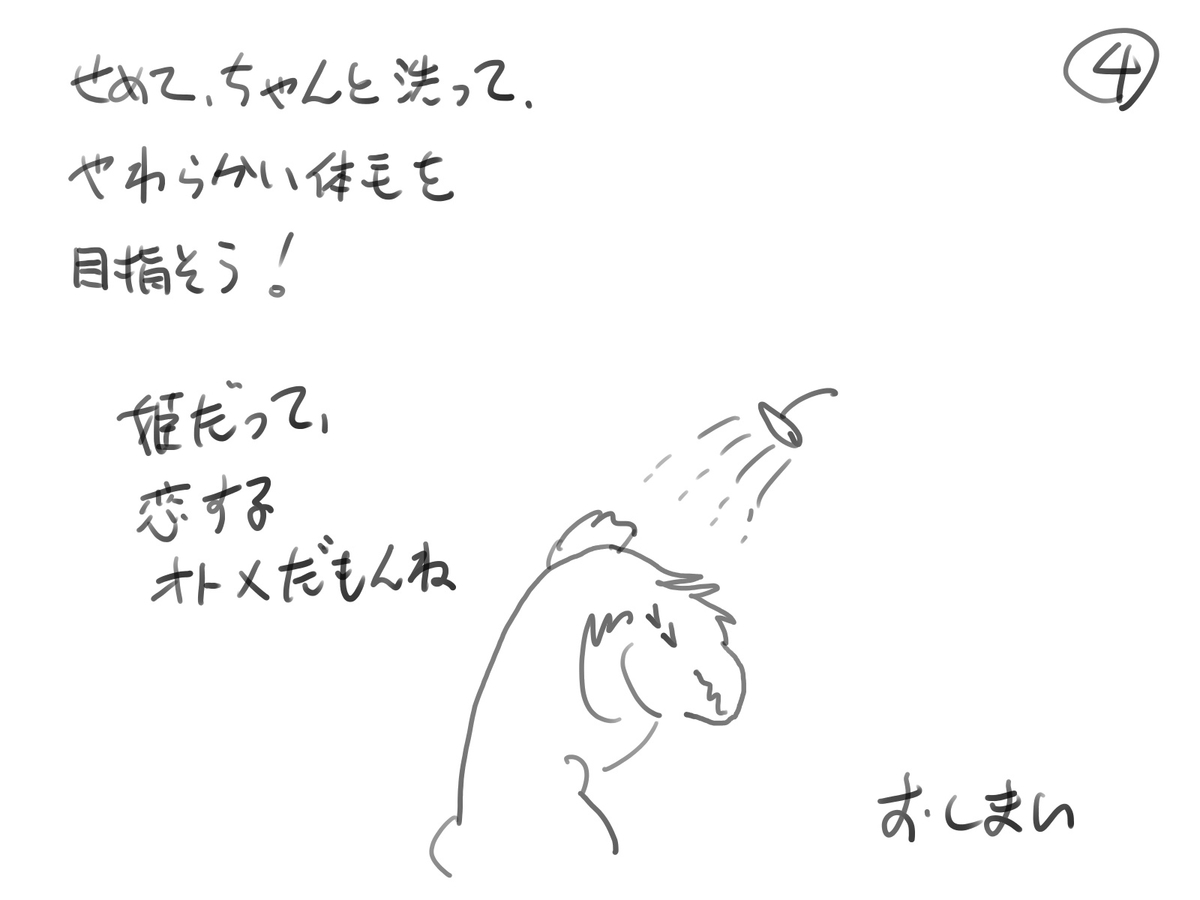 ④
せめて、ちゃんと洗って、
やわらかい体毛を
目指そう!
姫だって、
恋する
オトメだもんね
おしまい